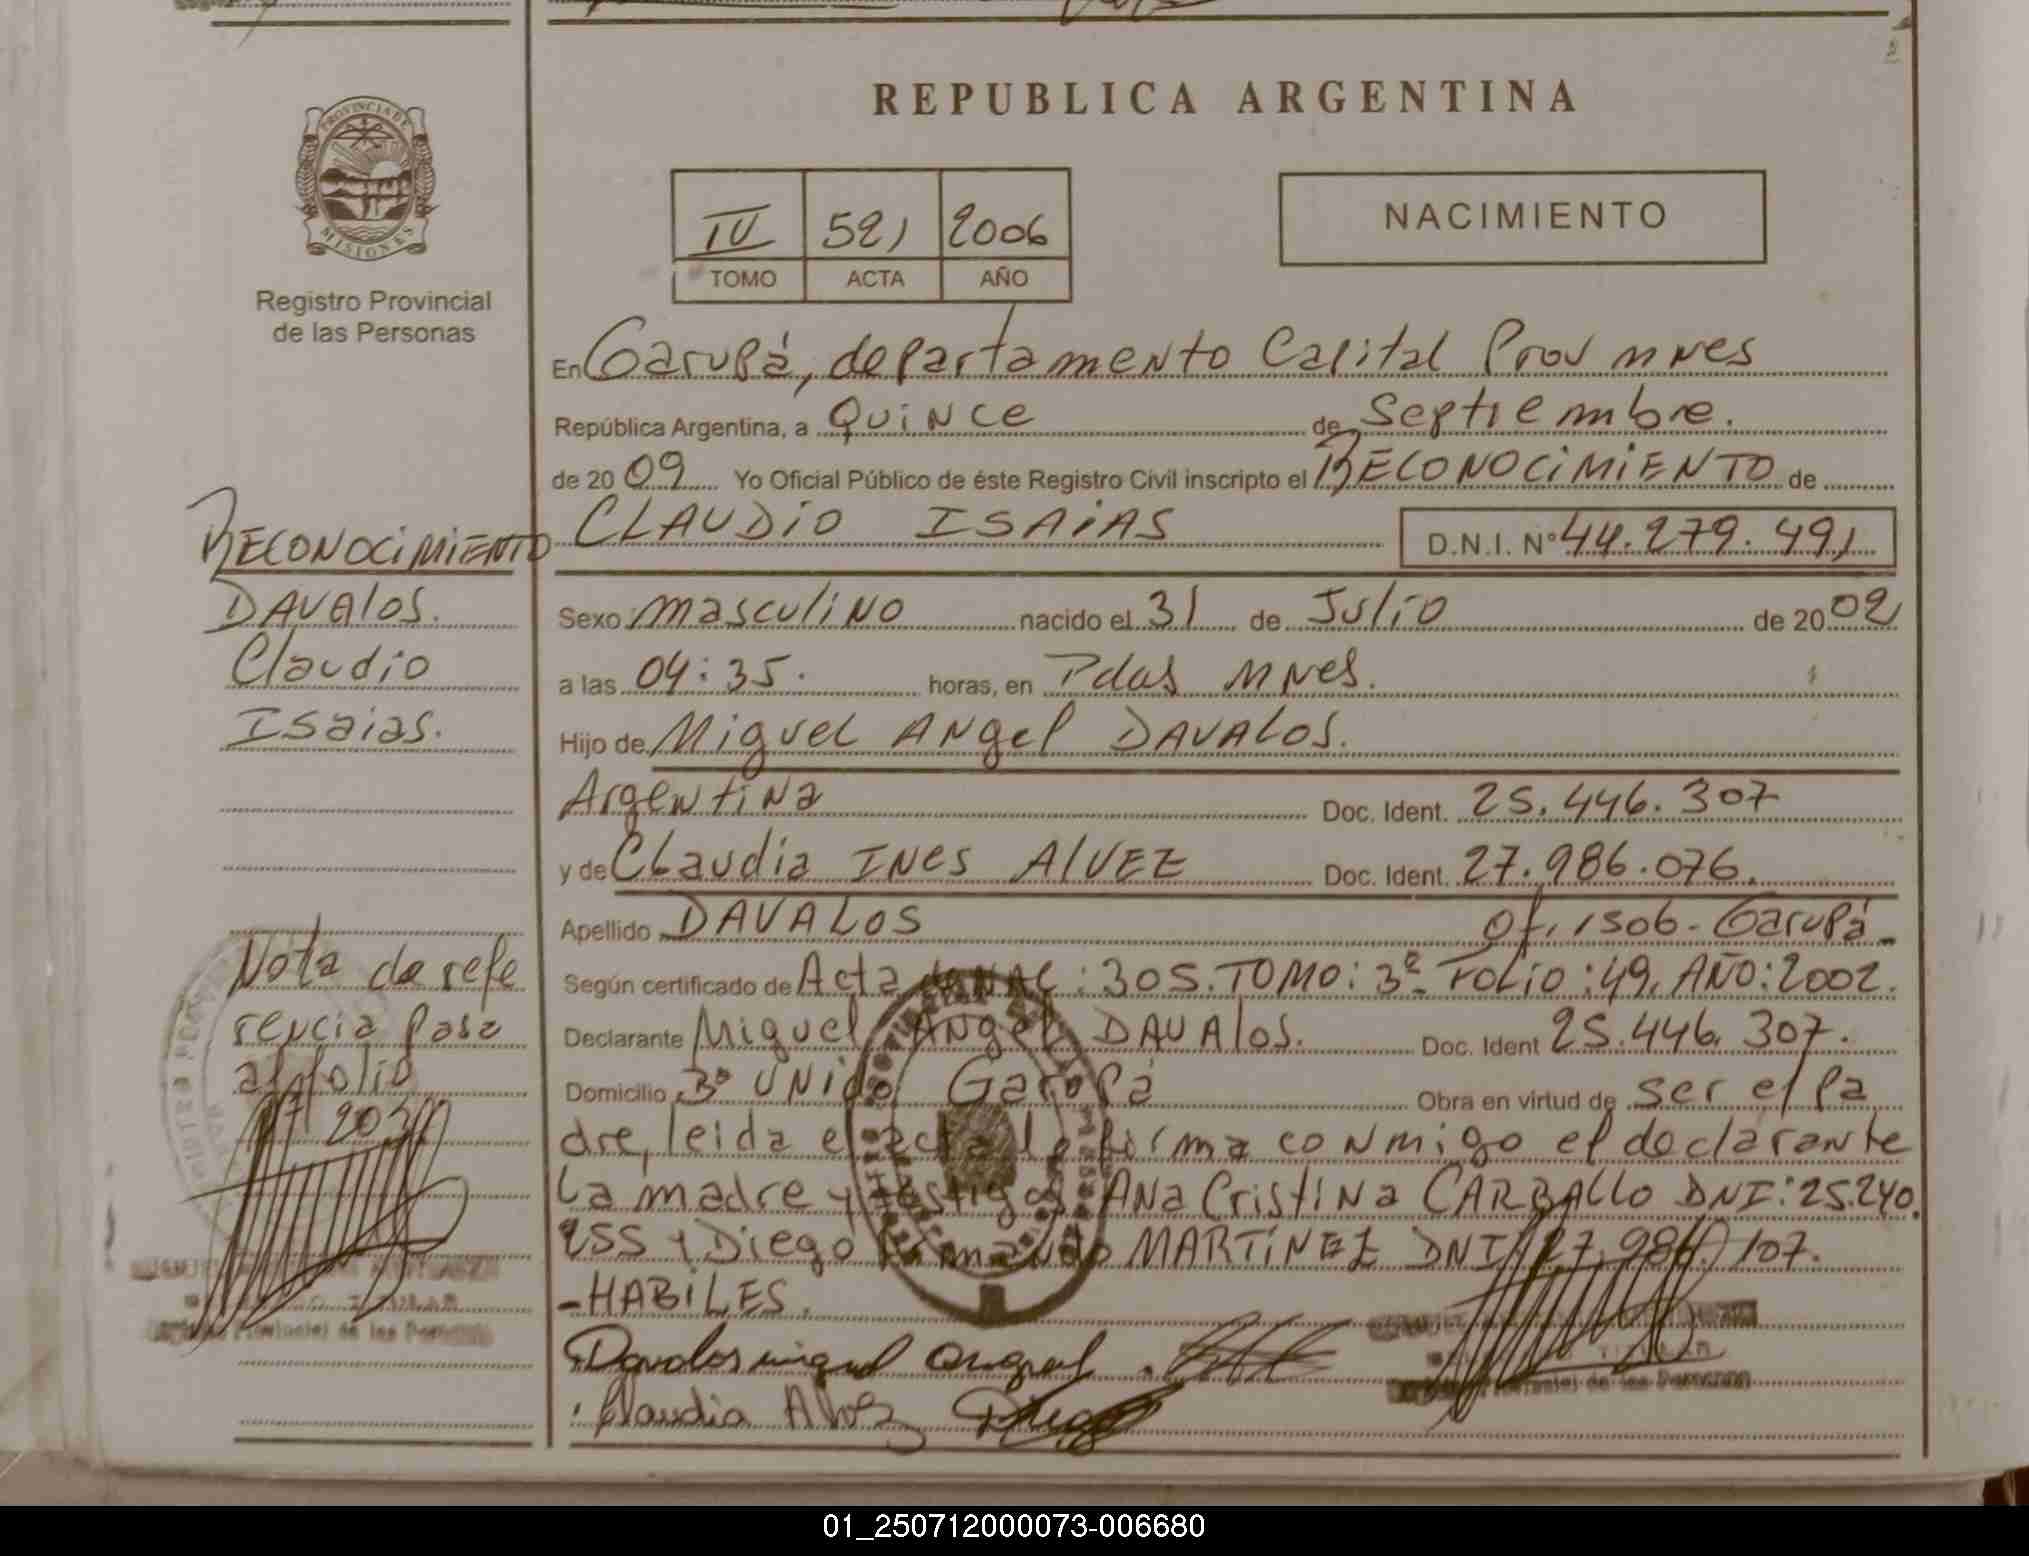 REPUBLICA ARGENTINA
PROVINCIA DE
MISIONES
Registro Provincial
de las Personas
IV 521 2006
TOMO ACTA AÑO
NACIMIENTO
En Garupá, departamento Capital Prov mnes
República Argentina, a Quince de Septiembre.
de 20 09 Yo Oficial Público de éste Registro Civil inscripto el RECONOCIMIENTO de
CLAUDIO ISAIAS D.N.I. Nº 44.279.491
Sexo masculino nacido el 31 de Julio de 20 02
a las 04:35. horas, en Pdas mnes.
Hijo de Miguel Angel DAVALOS.
Argentina Doc. Ident. 25.446.307
y de Claudia INES ALVEZ Doc. Ident. 27.986.076.
Apellido DAVALOS Of. 1506- Garupá-
Según certificado de Acta de NAC: 305. TOMO: 3º FOLIO: 49. AÑO: 2002.
Declarante Miguel Angel DAVALOS. Doc. Ident 25.446.307.
Domicilio Bº UNIDO Garupá Obra en virtud de ser el pa
dre, leida el acta la firma conmigo el declarante
La madre y testigos ANA Cristina CARBALLO DNI: 25.240.
255 y Diego MARTINEZ DNI 27.986.107.
-HABILES.
Davalos miguel angel
Claudia Alvez Diego
RECONOCIMIENTO
DAVALOS.
Claudio
Isaias.
Nota de refe
rencia pasa
al folio
Nº 203
Provincial de las Personas
Provincial de las Personas
01_250712000073-006680